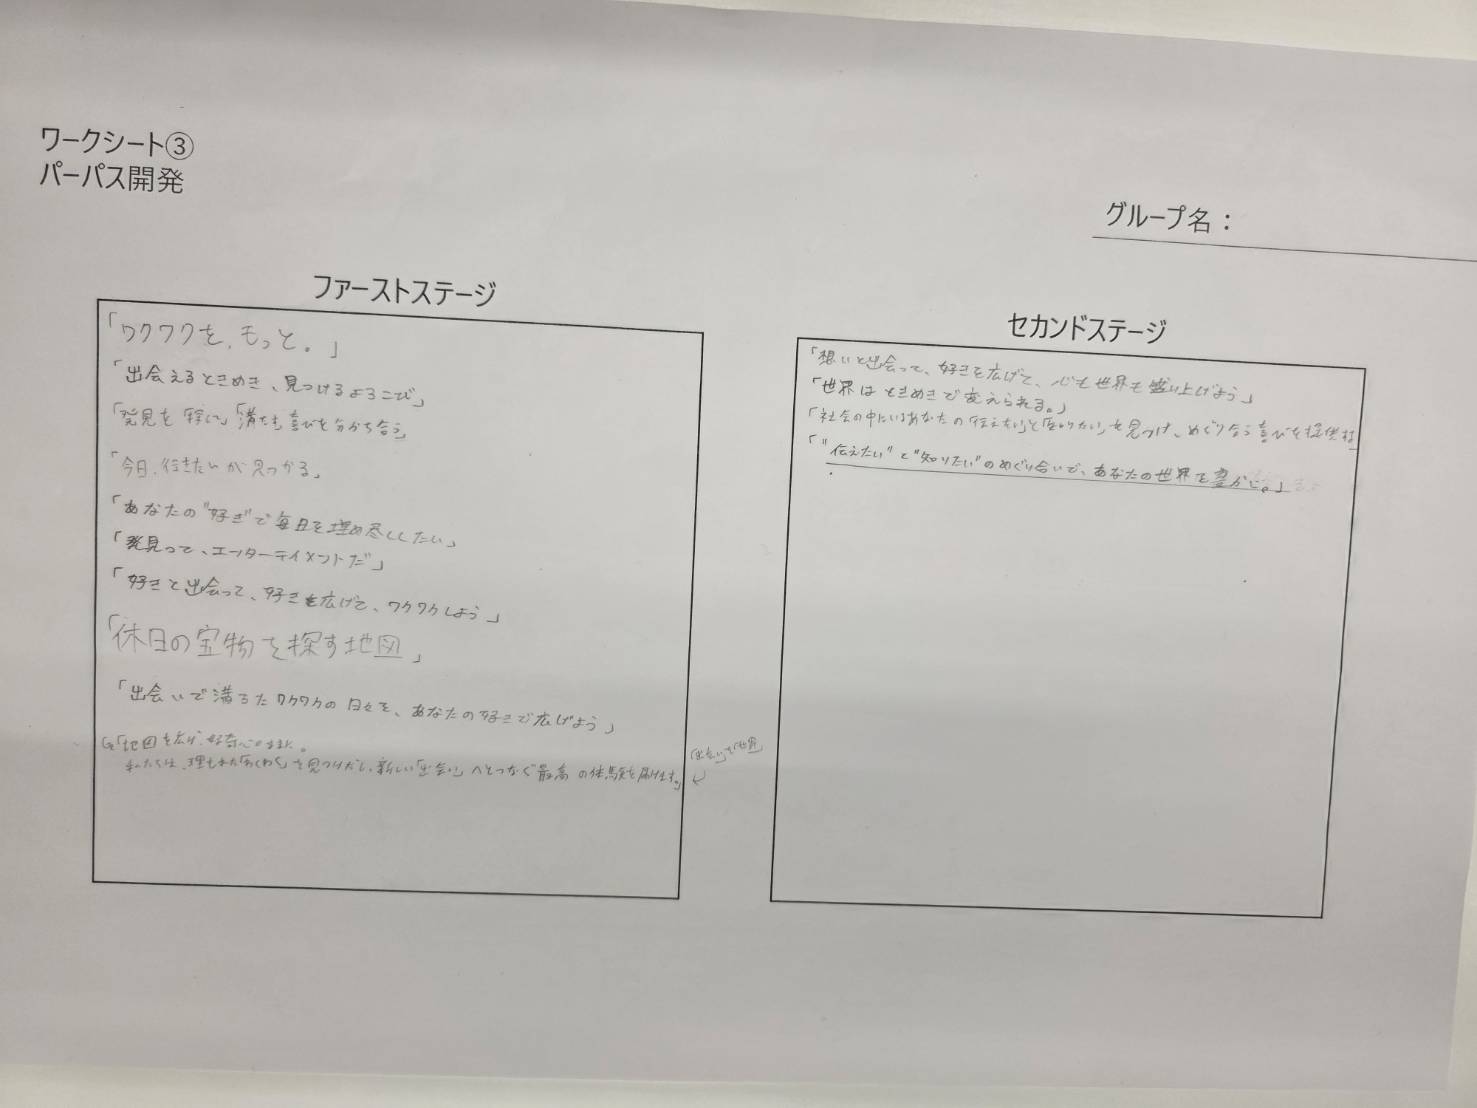 ワークシート③
パーパス開発
グループ名：
ファーストステージ
「ワクワクを、もっと。」
「出会えるときめき、見つけるよろこび」
「発見を 喜びを分かち合う」
「今日、行きたいが見つかる」
「あなたの"好き"で毎日を埋め尽くしたい」
「発見って、エンターテイメントだ」
「好きと出会って、好きを広げて、ワクワクしよう」
「休日の宝物を探す地図」
「出会いで満ちたワクワクの日々を、あなたの好きで広げよう」
「地図を広げ、好奇心のままに。
私たちは、埋もれた「わくわく」を見つけだし、新しい「出会い」へとつなぐ最高の体験を届けます。」
セカンドステージ
「想いと出会って、好きを広げて、心も世界も盛り上げよう」
「世界はときめきで変えられる。」
「社会の中にいるあなたの「伝えたい」と「知りたい」を見つけ、めぐり合う喜びを提供
「"伝えたい"と"知りたい"のめぐり合いで、あなたの世界を豊かに。」